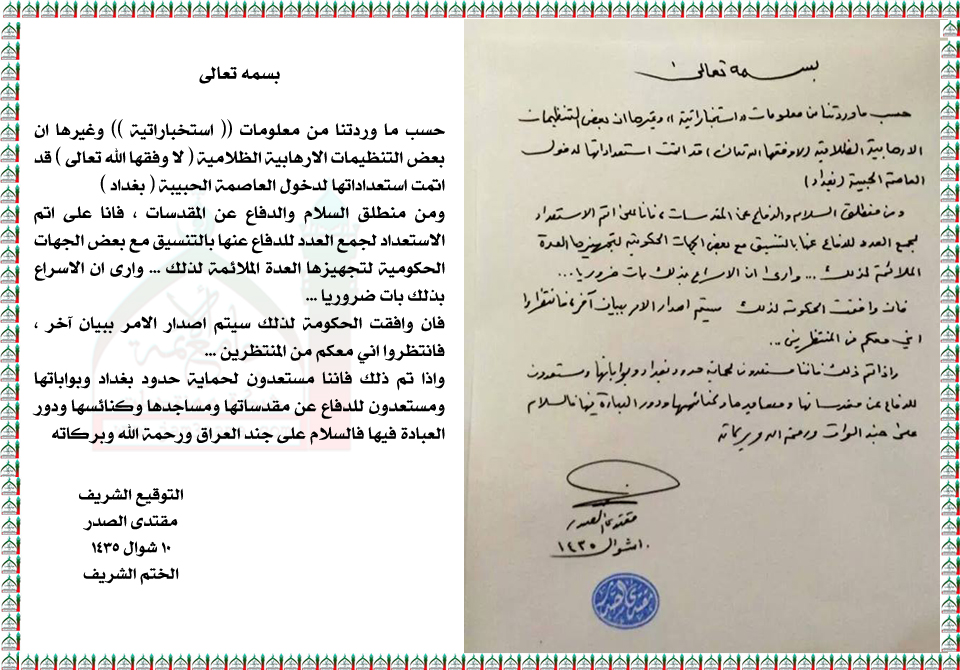 بسمه تعالى
حسب ما وردتنا من معلومات (( استخباراتية )) وغيرها ان
بعض التنظيمات الارهابية الظلامية ( لا وفقها الله تعالى ) قد
اتمت استعداداتها لدخول العاصمة الحبيبة ( بغداد )
ومن منطلق السلام والدفاع عن المقدسات ، فانا على اتم
الاستعداد لجمع العدد للدفاع عنها بالتنسيق مع بعض الجهات
الحكومية لتجهيزها العدة الملائمة لذلك ... وارى ان الاسراع
بذلك بات ضروريا ...
فان وافقت الحكومة لذلك سيتم اصدار الامر ببيان آخر ،
فانتظروا اني معكم من المنتظرين ...
واذا تم ذلك فاننا مستعدون لحماية حدود بغداد وبواباتها
ومستعدون للدفاع عن مقدساتها ومساجدها وكنائسها ودور
العبادة فيها فالسلام على جند العراق ورحمة الله وبركاته
التوقيع الشريف
مقتدى الصدر
١٠ شوال ١٤٣٥
الختم الشريف
بسمه تعالى
حسب ما وردتنا من معلومات (( استخباراتية )) وغيرها ان بعض التنظيمات
الارهابية الظلامية ( لا وفقها الله تعالى ) قد اتمت استعداداتها لدخول
العاصمة الحبيبة ( بغداد )
ومن منطلق السلام والدفاع عن المقدسات ، فانا على اتم الاستعداد
لجمع العدد للدفاع عنها بالتنسيق مع بعض الجهات الحكومية لتجهيزها العدة
الملائمة لذلك ... وارى ان الاسراع بذلك بات ضروريا ...
فان وافقت الحكومة لذلك سيتم اصدار الامر ببيان آخر ، فانتظروا
اني معكم من المنتظرين ...
واذا تم ذلك فاننا مستعدون لحماية حدود بغداد وبواباتها ومستعدون
للدفاع عن مقدساتها ومساجدها وكنائسها ودور العبادة فيها فالسلام
على جند العراق ورحمة الله وبركاته
مقتدى الصدر
١٠ شوال ١٤٣٥
مقتدى الصدر